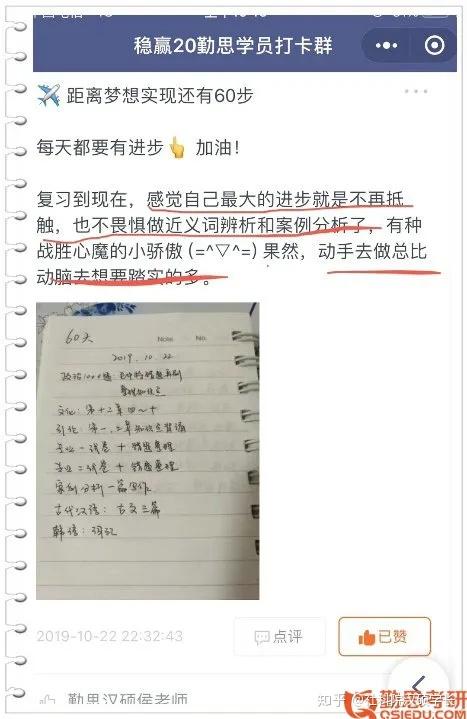 稳赢20勤思学员打卡群
距离梦想实现还有60步
每天都要有进步👆 加油！
复习到现在，感觉自己最大的进步就是不再抵
触，也不畏惧做近义词辨析和案例分析了，有种
战胜心魔的小骄傲 (=^▽^=) 果然，动手去做总比
动脑去想要踏实的多。
60天
Note No.
2019.10.22
文化：第十二章四~十
引论：第一、二章知识点背诵
专业一试卷 + 错题整理
专业二试卷 + 错题整理
案例分析一篇写作
古代汉语：古文三篇
韩语：词汇
2019-10-22 22:32:43
点评
已赞
勤思汉硕侯老师
勤思考研
QSIEDU.COM